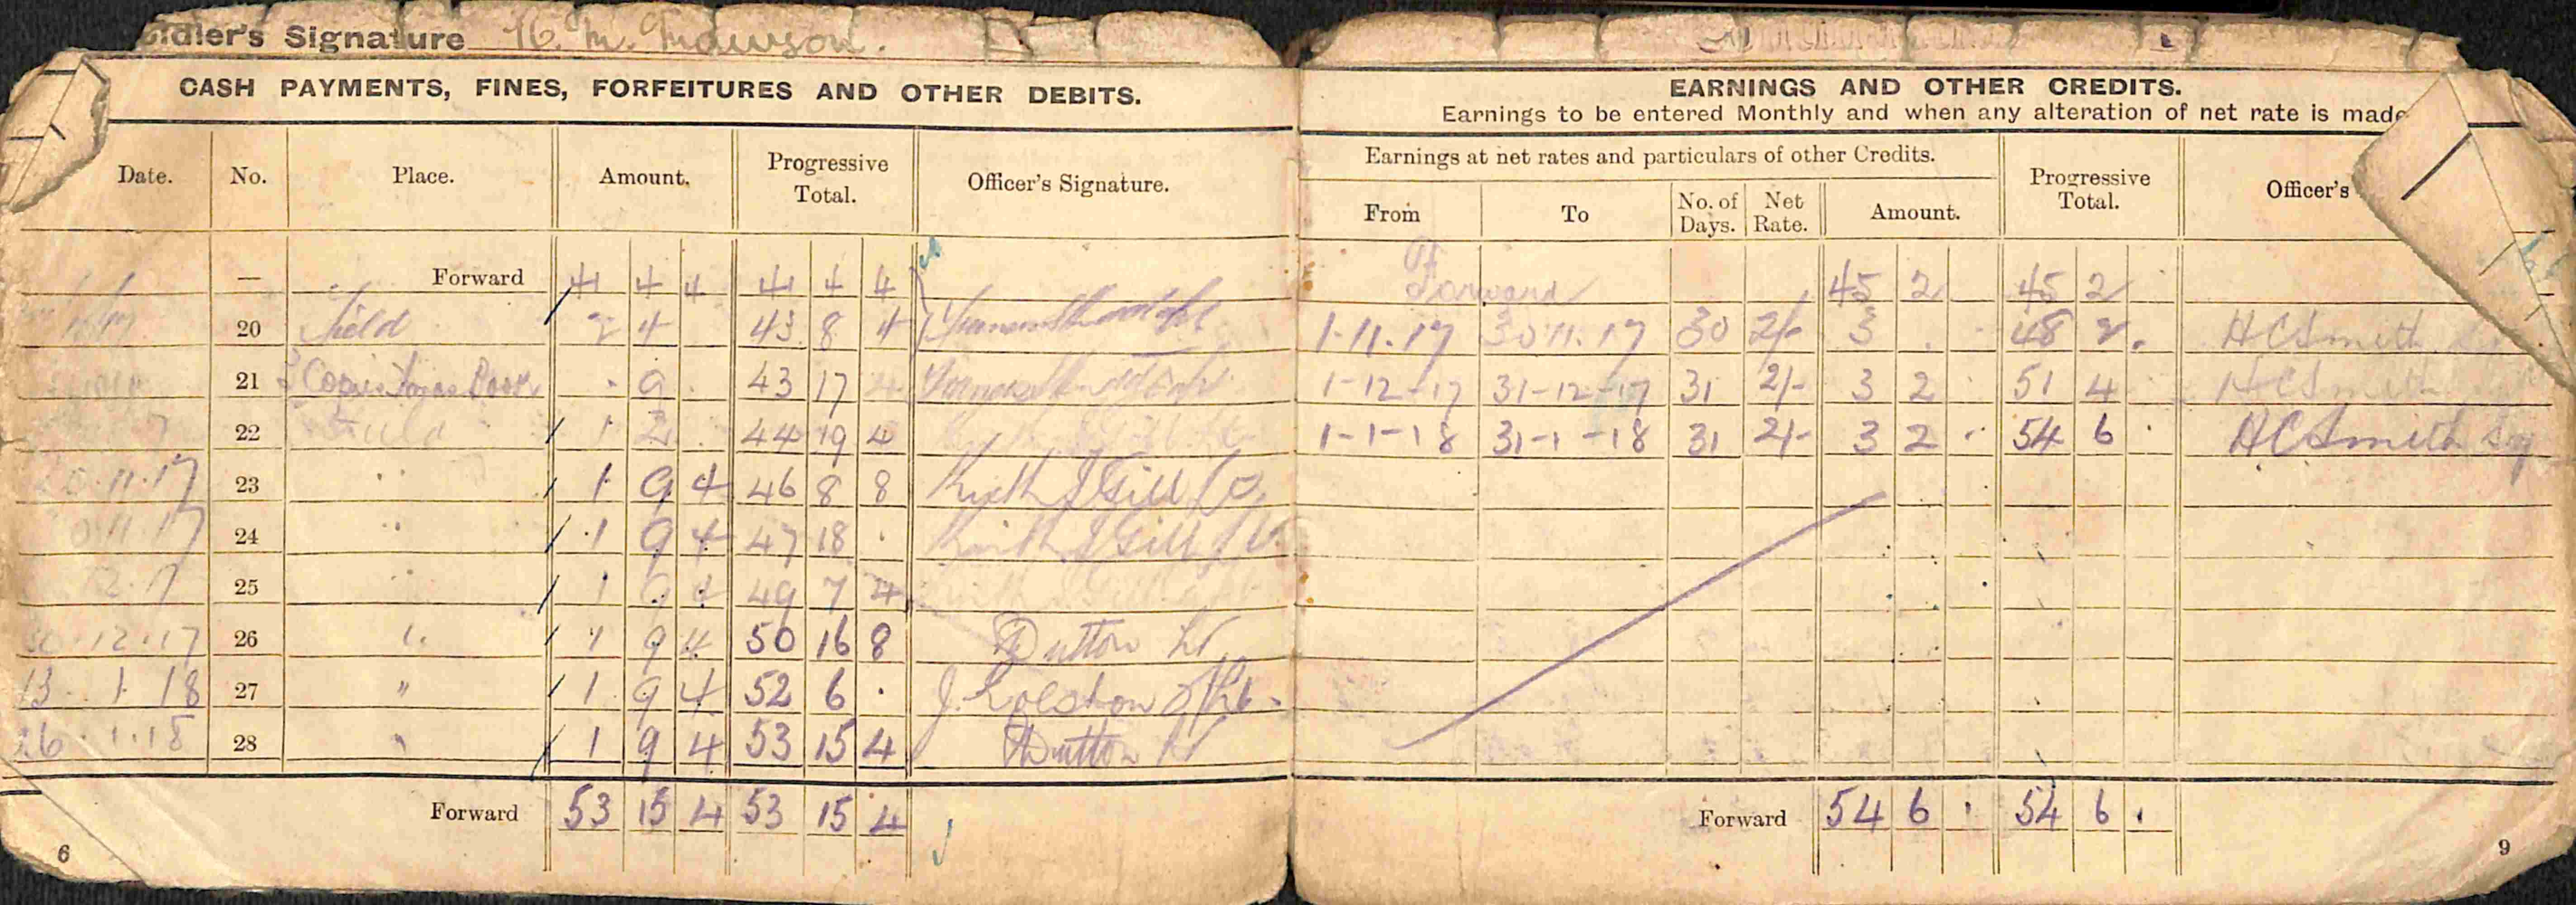 Soldier's Signature H. M. Mawson.
CASH PAYMENTS, FINES, FORFEITURES AND OTHER DEBITS.
Date. No. Place. Amount. Progressive Total. Officer's Signature.
— Forward 41 4 4 41 4 4
20 Field 2 4 43 8 4
21 3 Copies Book . 9 . 43 17 4
22 Field 1 2 . 44 19 4
11.17 23 " 1 9 4 46 8 8 Keith J Gill
11.17 24 " 1 9 4 47 18 . Keith J Gill
12.17 25 " 1 9 4 49 7 4
30.12.17 26 " 1 9 4 50 16 8 Dutton Lt
13.1.18 27 " 1 9 4 52 6 .
26.1.18 28 " 1 9 4 53 15 4 Dutton Lt
Forward 53 15 4 53 15 4
6
EARNINGS AND OTHER CREDITS.
Earnings to be entered Monthly and when any alteration of net rate is made
Earnings at net rates and particulars of other Credits. Progressive Total. Officer's
From To No. of Days. Net Rate. Amount.
Forward 45 2 45 2
1-11.17 30.11.17 30 2/- 3 . . 48 2 . H C Smith
1-12-17 31-12-17 31 2/- 3 2 . 51 4 H C Smith
1-1-18 31-1-18 31 2/- 3 2 . 54 6 . H C Smith
Forward 54 6 . 54 6 .
9